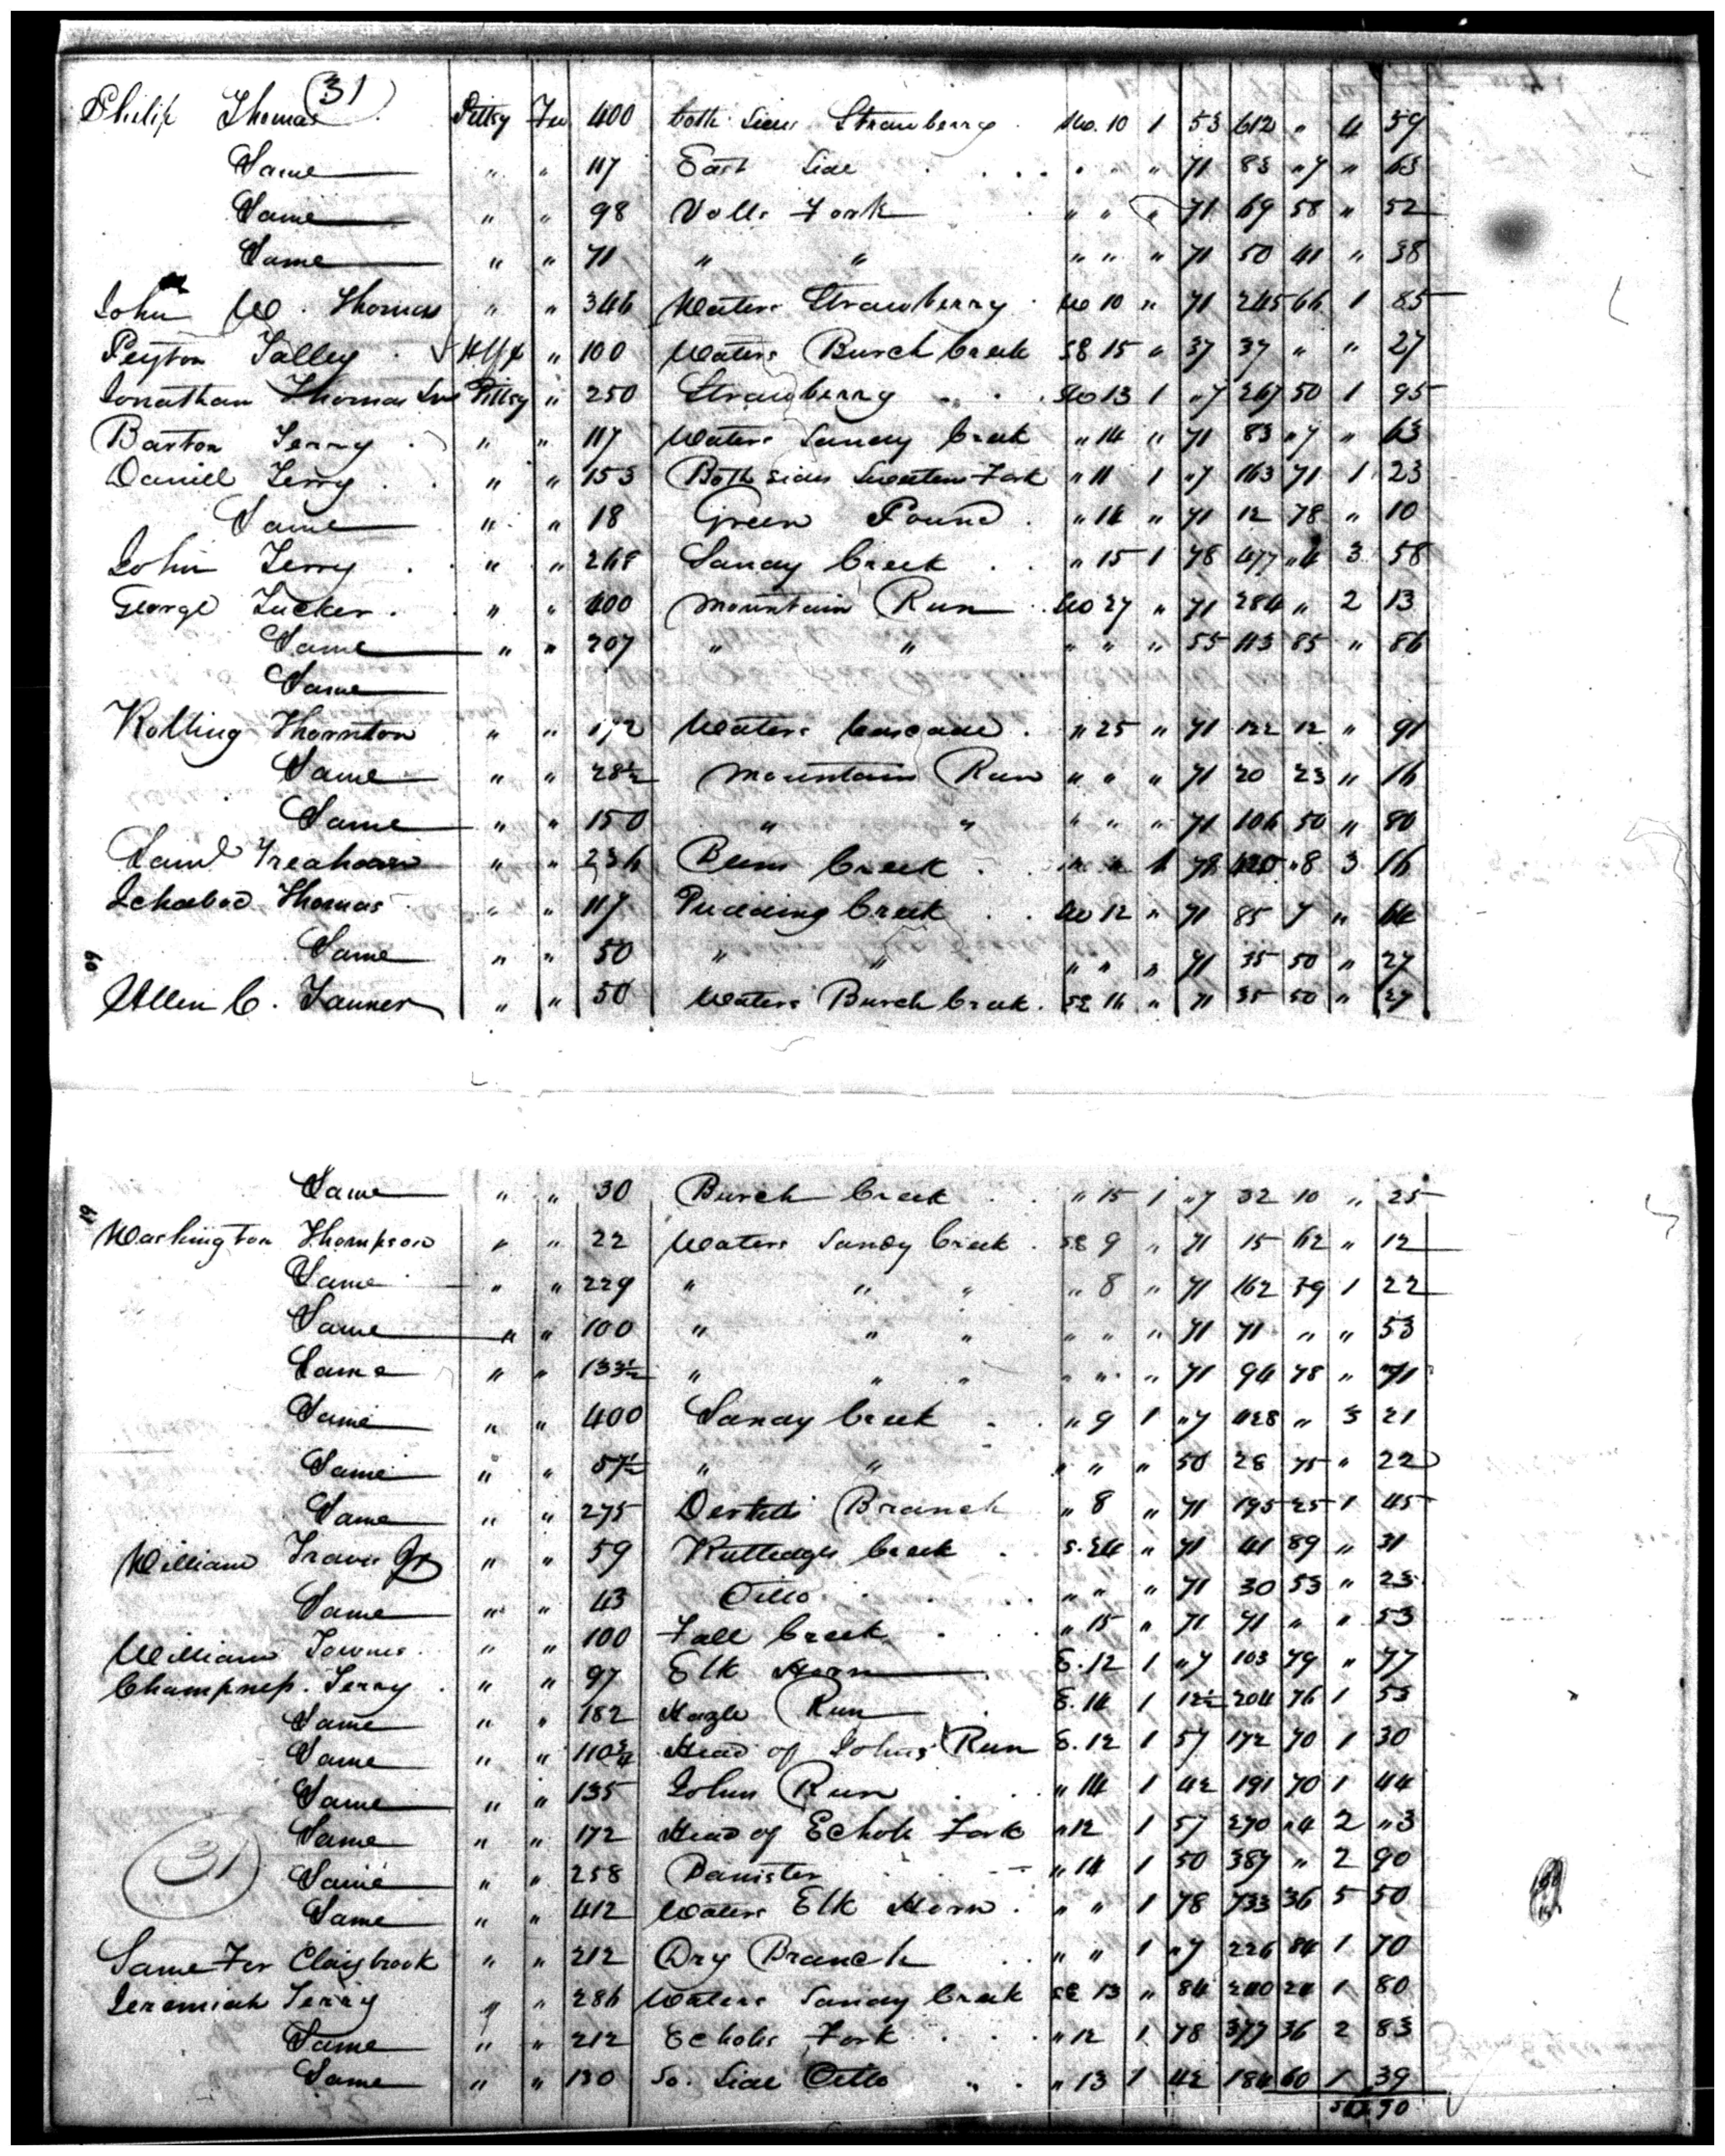 (31)
Philip Thomas . Pittsy Fee 400 both sides Strawberry . No. 10 1 53 612 " 4 59
Same " " 117 East side . . . . " " " 71 83 "7 " 63
Same " " 98 Volls Fork . " " " 71 69 58 " 52
Same " " 71 " " " " " 71 50 41 " 38
John W. Thomas " " 346 Waters Strawberry . No 10 " 71 245 66 1 85
Peyton Talley . Hfx " 100 Waters Burch Creek SE 15 " 37 37 " " 27
Jonathan Thomas Pittsy " 250 Strawberry . . No 13 1 "7 267 50 1 95
Barton Terry . " " 117 Waters Sandy Creek " 14 " 71 83 "7 " 63
Daniel Terry . . " " 153 Both sides Sweeten Fork " 11 1 "7 163 71 1 23
Same " " 18 Green Pound . " 14 " 71 12 78 " 10
John Terry . . " " 268 Sandy Creek . . " 15 1 78 477 "4 3 58
George Tucker . . " " 400 Mountain Run . No 27 " 71 284 " 2 13
Same " " 207 " " " " " 55 113 85 " 86
Same
Rolling Thornton " " 172 Waters Cascade . " 25 " 71 122 12 " 91
Same " " 28½ Mountain Run " " " 71 20 23 " 16
Same " " 150 " " " " " 71 106 50 " 80
Saml Treahorn " " 236 Bens Creek . . " " 1 78 420 "8 3 16
Ichabod Thomas " " 117 Pudding Creek . . No 12 " 71 85 7 " 64
Same " " 50 " " " " " 71 35 50 " 27
60
Allen C. Tanner " " 50 Waters Burch Creek . SE 16 " 71 35 50 " 27
Same " " 30 Burch Creek . . " 15 1 "7 32 10 " 25
61
Washington Thompson " " 22 Waters Sandy Creek . SE 9 " 71 15 62 " 12
Same " " 229 " " " " 8 " 71 162 59 1 22
Same " " 100 " " " " " " 71 71 " " 53
Same " " 133½ " " " " " " 71 94 78 " 71
Same " " 400 Sandy Creek . . " 9 1 "7 428 " 3 21
Same " " 57½ " " " " " 50 28 75 " 22
Same " " 275 Branch " 8 " 71 195 25 1 45
William Travis Jr " " 59 Rutledges Creek . S.E 14 " 71 41 89 " 31
Same " " 43 Ditto . . . " " " 71 30 53 " 23
William Townes . " " 100 Fall Creek . . " 15 " 71 71 " " 53
Champness Terry . " " 97 Elk Horn E. 12 1 "7 103 79 " 77
Same " " 182 Hazle Run . E. 14 1 12½ 204 76 1 53
Same " " 110¾ Head of Johns Run E. 12 1 57 172 70 1 30
Same " " 135 Johns Run . . " 14 1 42 191 70 1 44
Same " " 172 Head of Echols Fork " 12 1 57 270 "4 2 "3
(31)
Same " " 258 Banister . . " 14 1 50 387 " 2 90
Same " " 412 Waters Elk Horn . " " 1 78 733 36 5 50
Same For Claybrook " " 212 Dry Branch . " " 1 "7 226 84 1 70
Jeremiah Terry " " 286 Waters Sandy Creek SE 13 " 84 240 24 1 80
Same " " 212 Echols Fork . . . " 12 1 78 377 36 2 83
Same " " 130 So. Side Ditto . . " 13 1 42 184 60 1 39